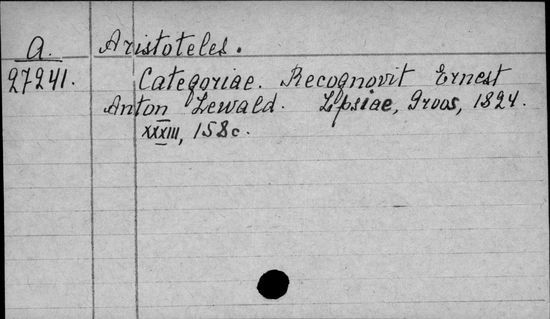 A. Aristoteles.
27241. Categoriae. Recognovit Ernest
Anton Lewald. Lipsiae, Groos, 1824.
XXXIII, 158c.